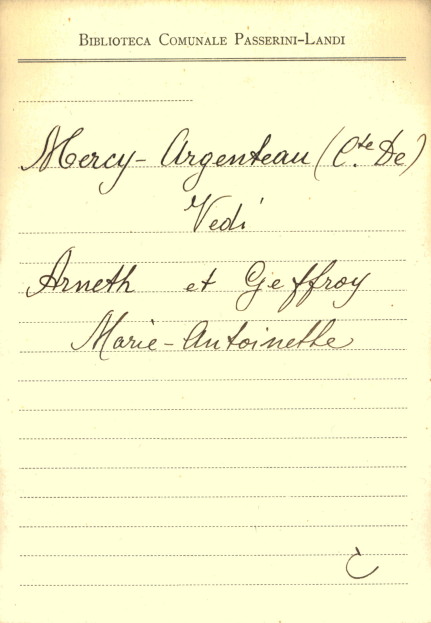 BIBLIOTECA COMUNALE PASSERINI-LANDI
Mercy-Argenteau (Cte De)
Vedi
Arneth et Geffroy
Marie-Antoinette
C